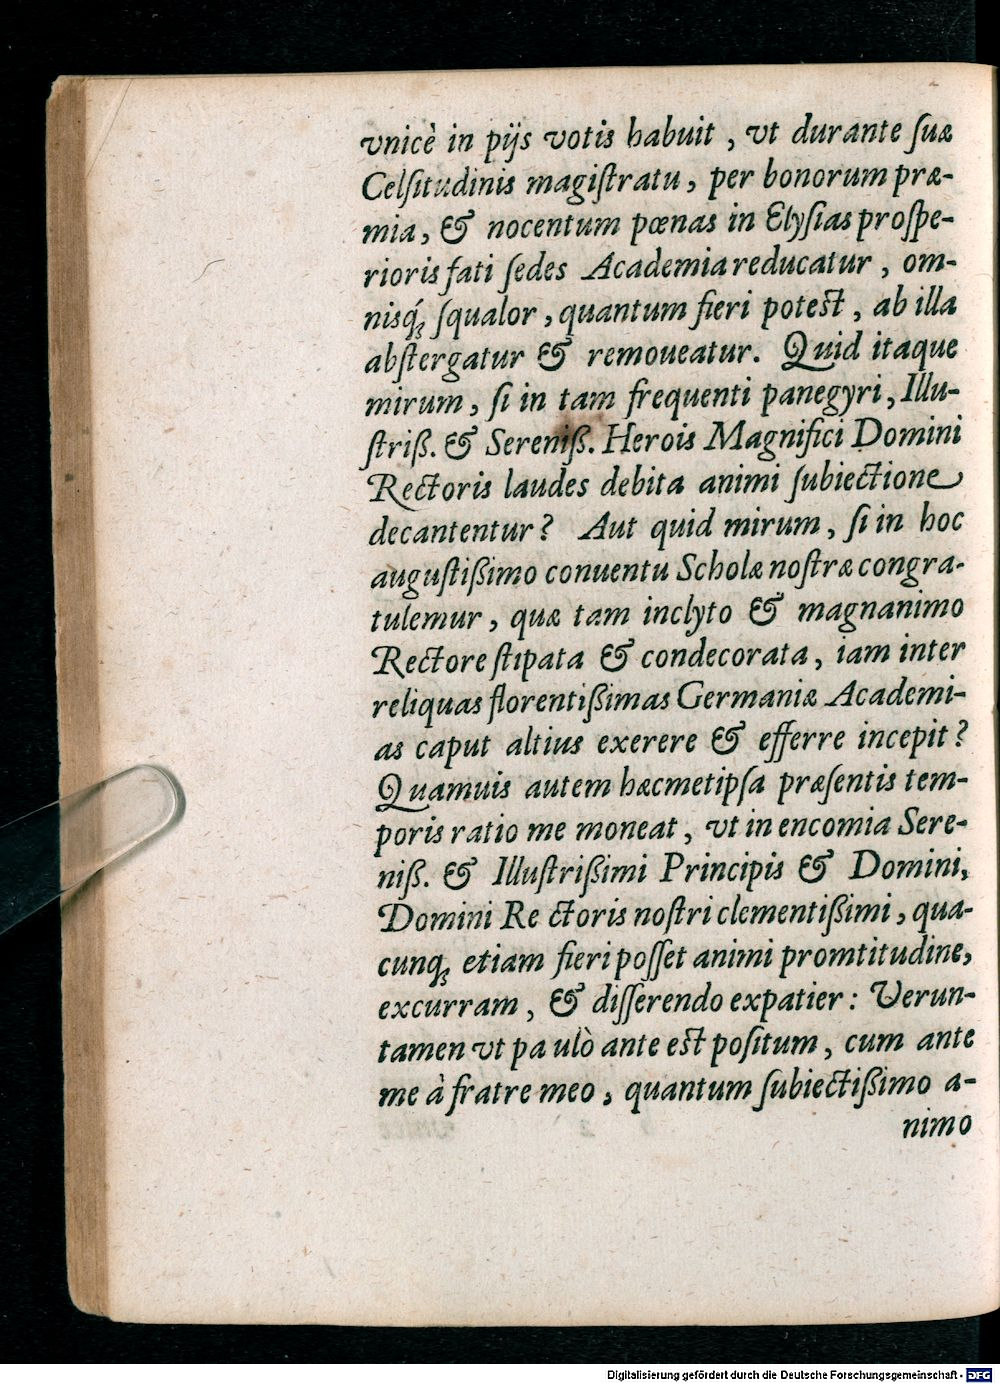 vnicè in pijs votis habuit, vt durante ſuæ
Celſitudinis magiſtratu, per bonorum præ-
mia, & nocentum pœnas in Elyſias proſpe-
rioris fati ſedes Academia reducatur, om-
nisq́ꝫ ſqualor, quantum fieri poteſt, ab illa
abſtergatur & remoueatur. Quid itaque
mirum, ſi in tam frequenti panegyri, Illu-
ſtriß. & Sereniß. Herois Magnifici Domini
Rectoris laudes debita animi ſubiectione
decantentur? Aut quid mirum, ſi in hoc
auguſtißimo conuentu Scholæ noſtræ congra-
tulemur, quæ tam inclyto & magnanimo
Rectore ſtipata & condecorata, iam inter
reliquas florentißimas Germaniæ Academi-
as caput altius exerere & efferre incepit?
Quamuis autem hæcmetipſa præſentis tem-
poris ratio me moneat, vt in encomia Sere-
niß. & Illuſtrißimi Principis & Domini,
Domini Re ctoris noſtri clementißimi, qua-
cunqꝫ etiam fieri poſſet animi promtitudine,
excurram, & diſſerendo expatier: Verun-
tamen vt pa ulò ante eſt poſitum, cum ante
me à fratre meo, quantum ſubiectißimo a-
nimo
Digitalisierung gefördert durch die Deutsche Forschungsgemeinschaft - DFG